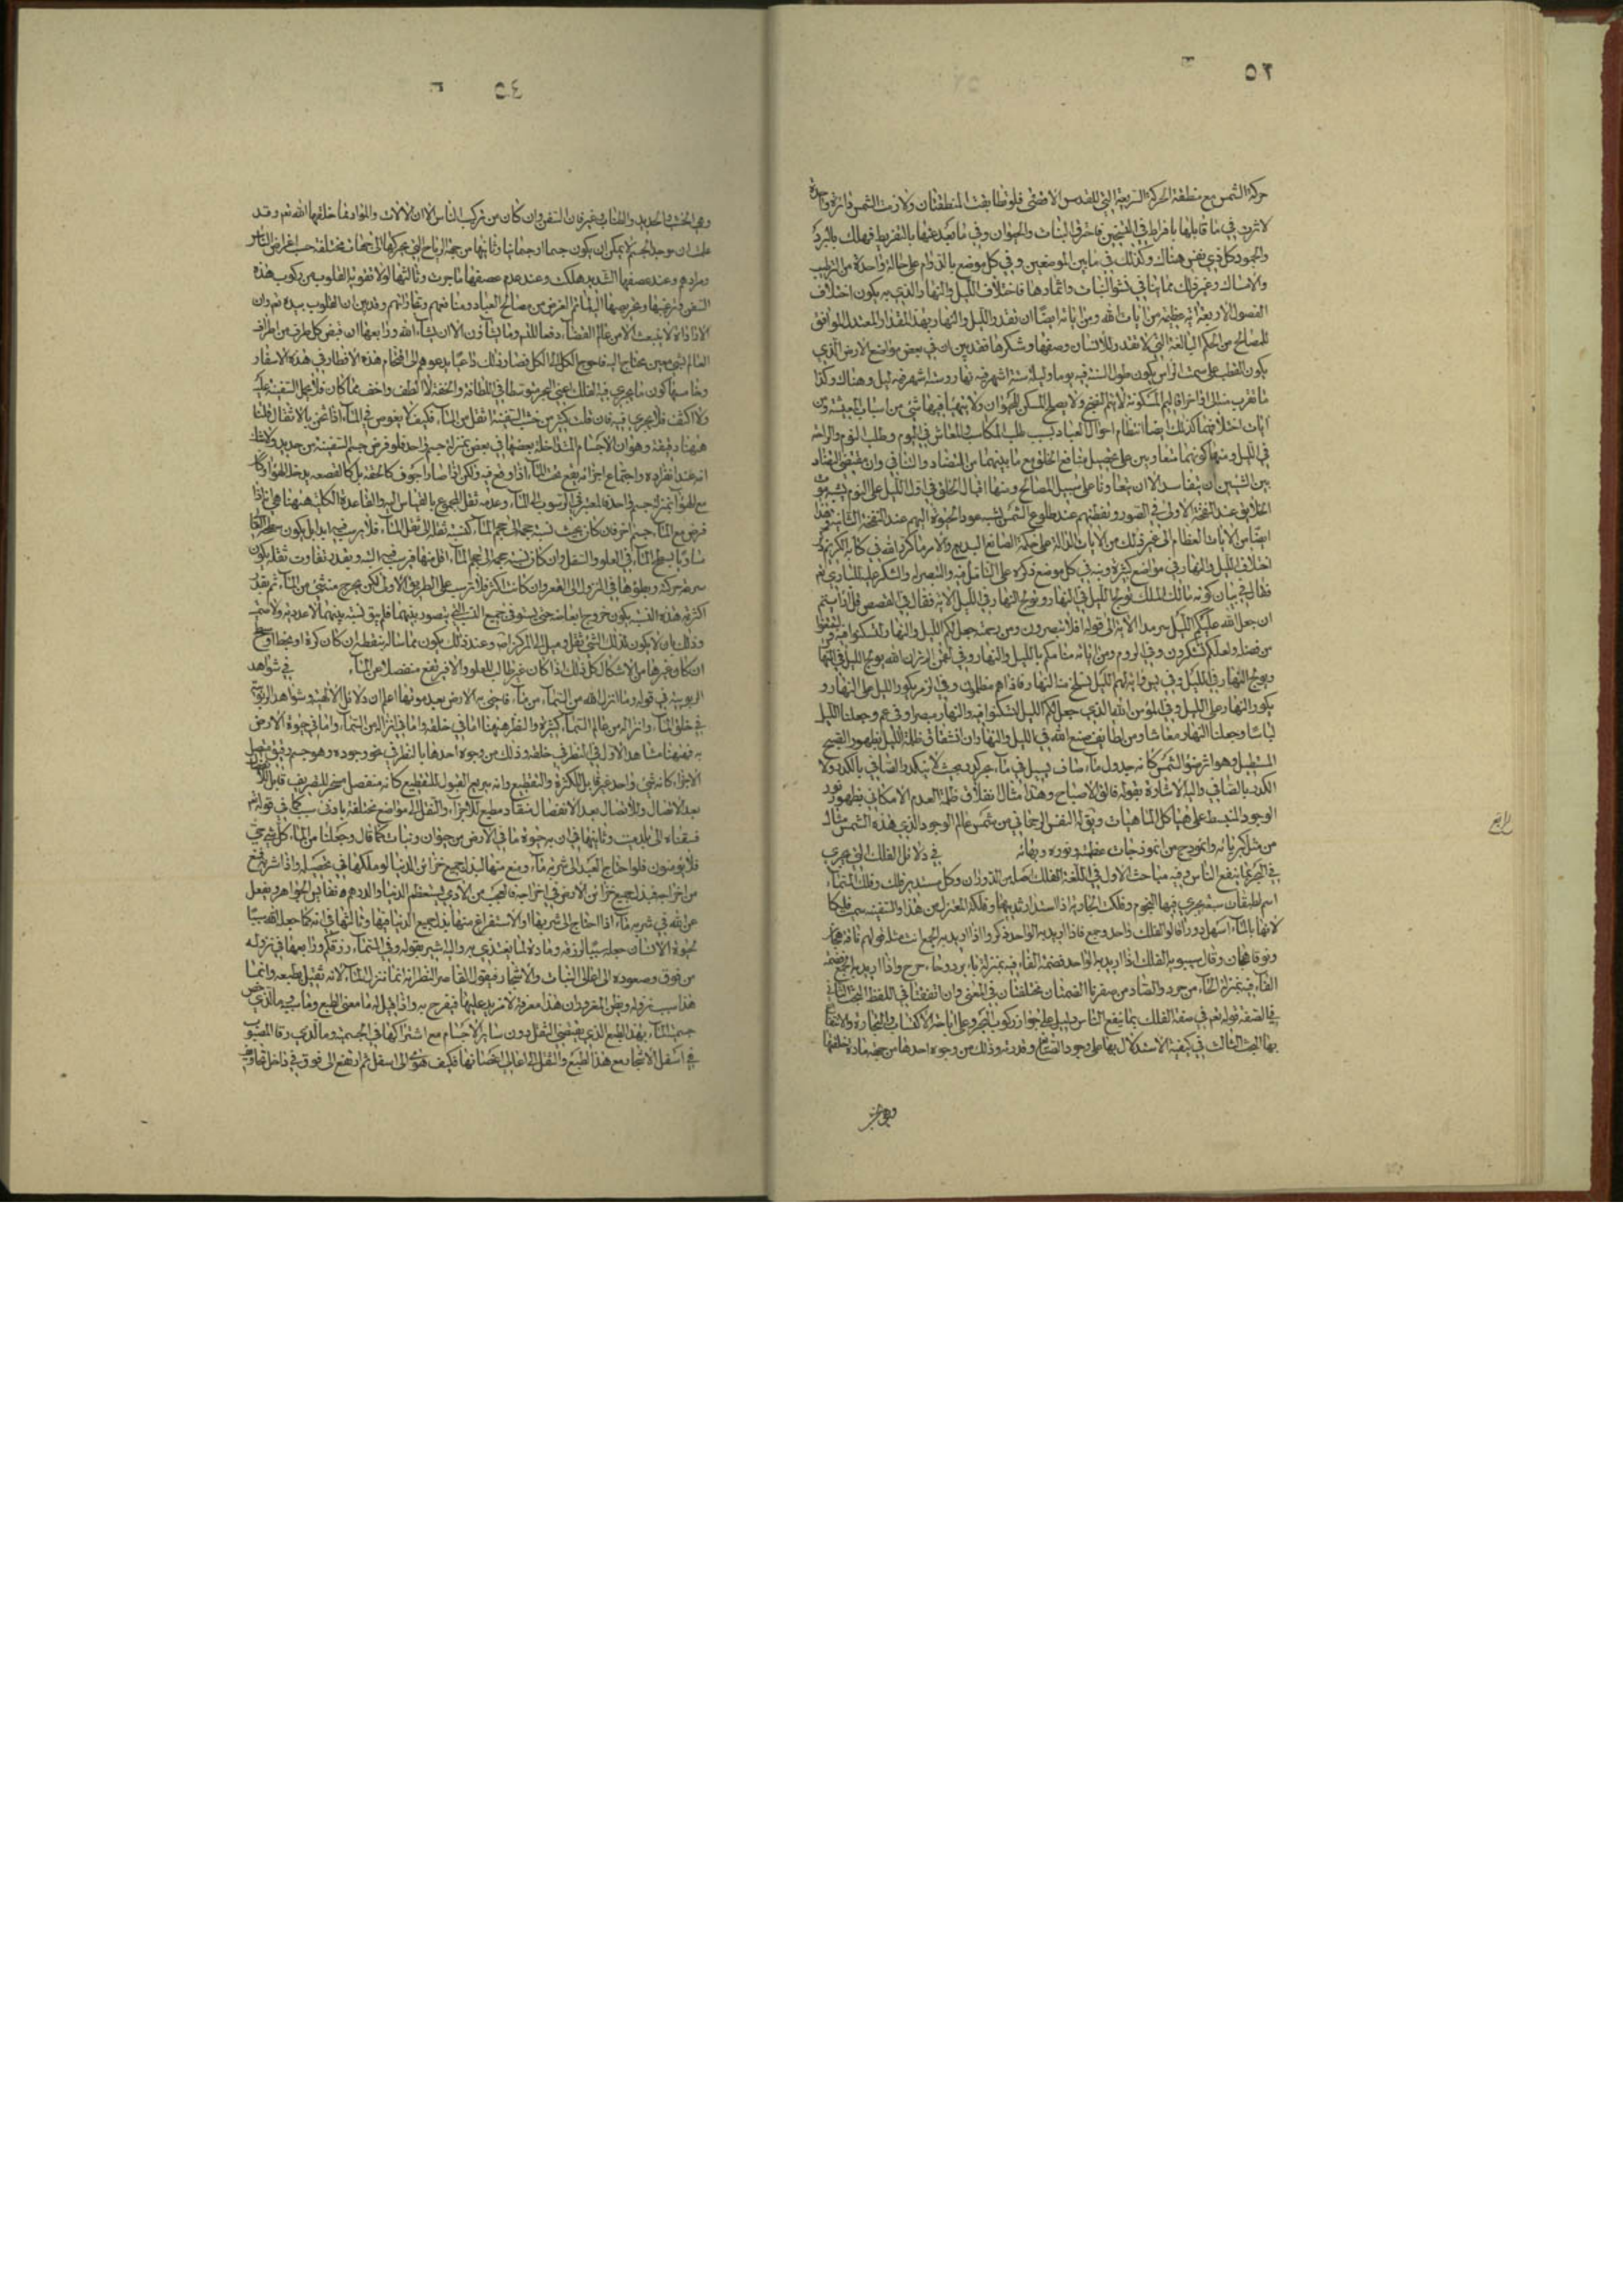 ٥٣
حركة الشمس مع منطقة الحركة السريعة التي للفلك الاقصى فلو تطابقت المنطقتان ولازمت الشمس دائرة واحدة
لاثرت في ما قابلها بافراط في التسخين فاحرق النبات والحيوان وفي ما بعد عنها بالتفريط فهلك بالبرد
والجمود كل ذي نفس هناك وكذلك في ما بين الموضعين وفي كل موضع بالدوام على حالة واحدة من الترطيب
والامساك وغير ذلك مما ينافي نشو النبات واثمارها فاختلاف الليل والنهار الذي به يكون اختلاف
الفصول الاربعة اية عظيمة من ايات الله ومن اياته ايضا ان تقدر الليل والنهار بهذا المقدار المعتدل الموافق
للمصالح من الحكم البالغة التي لا تقدر للانسان وصفها وشكرها فقد بين ان في بعض مواضع الارض الذي
يكون القطب على سمت الراس يكون طول السنة فيه يوما وليلة ستة اشهر فيه نهار وستة اشهر فيه ليل وهناك وكذا
ما تقرب منه لا يتم النضج ولا يصلح المسكن للحيوان ولا يتهيا فيها شئ من اسباب المعيشة ومن
ايات اختلافهما كذلك ايضا انتظام احوال العباد بسبب طلب المكاسب والمعاش في اليوم وطلب النوم والراحة
في الليل ومنها كونهما متعاونين على تحصيل منافع الخلق مع ما بينهما من التضاد والتنافي وان مقتضى التضاد
بين الشيئين ان يتفاسدا لا ان يتعاونا على تحصيل المصالح ومنها اقبال الخلق في اول الليل على النوم يشبه موت
الخلايق عند النفخة الاولى في الصور ويقظتهم عند طلوع الشمس يشبه عود الحيوة اليهم عند النفخة الثانية وهذا
ايضا من الايات العظام الى غير ذلك من الايات الدالة على حكمة الصانع البديع ولامر ما كرر الله في كتابه الكريم ذكر
اختلاف الليل والنهار في مواضع كثيرة ونبه في كل موضع ذكره على التامل فيه والتبصر به والشكر عليه للباري ثم
فقال في بيان كونه مالك الملك تولج الليل في النهار وتولج النهار في الليل الاية وقال في القصص قل ارايتم
ان جعل الله عليكم الليل سرمدا الاية الى قوله افلا تبصرون ومن رحمته جعل لكم الليل والنهار لتسكنوا فيه ولتبتغوا
من فضله ولعلكم تشكرون وفي الروم ومن اياته منامكم بالليل والنهار وفي لقمن الم تر ان الله يولج الليل في النهار
ويولج النهار في الليل وفي يس واية لهم الليل نسلخ منه النهار فاذا هم مظلمون وفي الزمر يكور الليل على النهار و
يكور النهار على الليل وفي المؤمن الله الذي جعل لكم الليل لتسكنوا فيه والنهار مبصرا وفي عم وجعلنا الليل
لباسا وجعلنا النهار معاشا ومن لطايف صنع الله في الليل والنهار ان انشقاق ظلمة الليل بظهور الصبح
المستطيل وهو اثر ضوء الشمس كانه جدول ماء صاف يسيل في ماء بحر كدر بحيث لا يتكدر الصافي بالكدر ولا
الكدر بالصافي واليه الاشارة بقوله فالق الاصباح وهذا مثال انفلاق ظلمة العدم الامكاني بظهور نور
الوجود المنبسط على هياكل الماهيات ويق له النفس الرحماني من شمس عالم الوجود الذي هذه الشمس مثال
من مثل كبريائه وانموذج من انموذجات عظمته ونوره وبهائه في دلائل الفلك التي تجري
في البحر بما ينفع الناس وفيه مباحث الاول في اللغة الفلك اصله من الدوران وكل مستدير فلك وفلك السماء
اسم لطبقات سبعة تجري فيها النجوم وفلكت الجارية اذا استدار ثديها وفلكة المغزل من هذا والسفينة سميت فلكا
لانها بالماء اسهل دورا قالوا الفلك واحد وجمع فاذا اريد به الواحد ذكر واذا اريد به الجمع انث مثله قولهم ناقة هجان
ونوق هجان وقال سيبويه الفلك اذا اريد به الواحد فضمة الفاء فيه بمنزلة باء برد وخاء خرج واذا اريد به الجمع فضمة
الفاء فيه بمنزلة الحاء من حمر والصاد من صفر فالضمتان مختلفتان في المعنى وان اتفقتا في اللفظ البحث الثاني
في الصفة قوله تعالى في صفة الفلك بما ينفع الناس دليل على جواز ركوب البحر وعلى اباحة الاكتساب والتجارة والانتفاع
بها البحث الثالث في كيفية الاستدلال بها على وجود الصانع وقدرته وذلك من وجوه احدها من جهة مادة خلقتها
٥٤
وهي الخشب والحديد والحبال وغيرها فان السفن وان كان من تركيب الناس الا ان الالات والمواد مما خلقها الله تعالى وقد
علمت ان موجد الجسم لا يمكن ان يكون جسما او جسمانيا وثانيها من جهة الرياح التي تحركها الى جهات مختلفة حسب اغراض الناس
ومرادهم وعند عصفها الشديد هلكت وعند عدم عصفها ما جرت وثالثها لولا تقوية القلوب من يركب هذه
السفن وترغيبها وتحريصها لما تم الغرض من مصالح العباد ومنافعهم وتجاراتهم وقد بين ان القلوب بيده تعالى وان
الارادة لا ينبعث الا من عالم القضاء دفعا للتسلسل وما تشاؤن الا ان يشاء الله ورابعها ان خص كل طرف من اطراف
العالم بشئ معين يحتاج اليه فاحوج الكل الى الكل فصار ذلك داعيا يدعوهم الى اقتحام هذه الاخطار في هذه الاسفار
وخامسها كون ما يجري فيه الفلك اعني البحر متوسطا في اللطافة والخفة لا الطف واخف مما كان فلا يحمل السفينة عليه
ولا اكثف فلا يجري فيه فان قلت كثير من خشب السفينة اثقل من الماء فكيف لا يغوص في الماء اذا شحن بالاثقال قلنا
ههنا دقيقة وهو ان الاجسام المتداخلة بعضها في بعض بمنزلة جسم واحد فلو فرض جسم السفينة من حديد ولا شك
انه عند انفراده واجتماع اجزائه يقع تحت الماء اذا وقع فيه ولكن اذا صار اجوف كالحقة بل كالقصعة يدخله الهواء وكان
مع الهواء بمنزلة جسم واحد فالمعتبر في الرسوب الى الماء وعدمه ثقل المجموع بالقياس اليه والقاعدة الكلية ههنا هي انه اذا
فرض مع الماء جسم اخر فان كان بحيث نسبة حجمه الى حجم الماء كنسبة ثقله الى ثقل الماء فلا يرسب فيه ابدا بل يكون سطحه الفوقاني
مساويا لسطح الماء في العلو والسفل وان كان نسبة حجمه الى حجم الماء اقل منها فيرسب فيه البتة وبقدر تفاوت ثقله يكون
سرعة حركته وبطؤها في النزول الى القعر وان كانت اكثر فلا يرسب على الطريق الاولى لكن يخرج منه شئ من الماء ثم بقدر
اكثرية هذه النسبة يكون خروج ابعاضه حتى يستوفي جميع النسب التي يتصور بينهما فلم يبق نسبة بينهما لا عددية ولا صمية
وذلك بان لا يكون لذلك الشئ ثقل وميل الى المركز اصلا وعند ذلك يكون مماسا له بنقطة ان كان كرة او بخط او سطح
ان كان غيرها من الاشكال كل ذلك اذا كان غير طالب للعلو والا فيرتفع منفصلا عن الماء في شواهد
الربوبية في قوله وما انزل الله من السماء من ماء فاحيى به الارض بعد موتها اعلم ان دلائل الالهية وشواهد الربوبية
في خلق الماء وانزاله من عالم السماء كثيرة والنظر ههنا اما في خلقه واما في انزاله من السماء واما في حيوة الارض
به فههنا مشاهد الاول في النظر في خلقه وذلك من وجوه احدها بالنظر في نحو وجوده وهو جسم رقيق متصل
الاجزاء كانه شئ واحد غير قابل للكثرة والتقطيع وانه سريع القبول للتقطيع كانه منفصل مسخر للتصريف قابل للانفصال
بعد الاتصال وللاتصال بعد الانفصال منقاد مطيع للاجزاء والنقل الى مواضع مختلفة بادنى سبب كما في قوله تعالى
فسقناه الى بلد ميت وثانيها في ان به حيوة ما في الارض من حيوان ونبات كما قال وجعلنا من الماء كل شئ حي
افلا يؤمنون فلو احتاج العبد الى شربة ماء ومنع منها لبذل جميع خزائن الدنيا لو ملكها في تحصيله واذا شربه ومنع
من اخراجه لبذل جميع خزائن الارض في اخراجه فالعجب من الادمي يستعظم الدنيا والدرهم ونفايس الجواهر ويغفل
عن الله في شربة ماء اذا احتاج الى شربها او الاستفراغ منها بذل جميع الدنيا فيها وثالثها في انه كما جعل الله سببا
لحيوة الانسان جعله سببا لرزقه ومادة لما يتغذى به واليه اشير بقوله وفي السماء رزقكم ورابعها في نزوله
من فوق وصعوده الى اعالي النبات والاشجار فيقول القاصر النظر انه انما نزل الماء لانه ثقيل بطبعه وانما
هذا سبب نزوله ويظن المغرور ان هذا معرفة لا مزيد عليها فيفرح به واذا قيل له ما معنى الطبع وما سببه وما الذي خص
جسم الماء بهذا الطبع الذي يقتضي الثقل دون ساير الاجسام مع اشتراكها في الجسمية وما الذي رقا الماء المصبوب
في اسفل الاشجار مع هذا الطبع والثقل الى اعالي اغصانها فكيف هوى الى اسفل ثم ارتفع الى فوق في داخل تجاويف